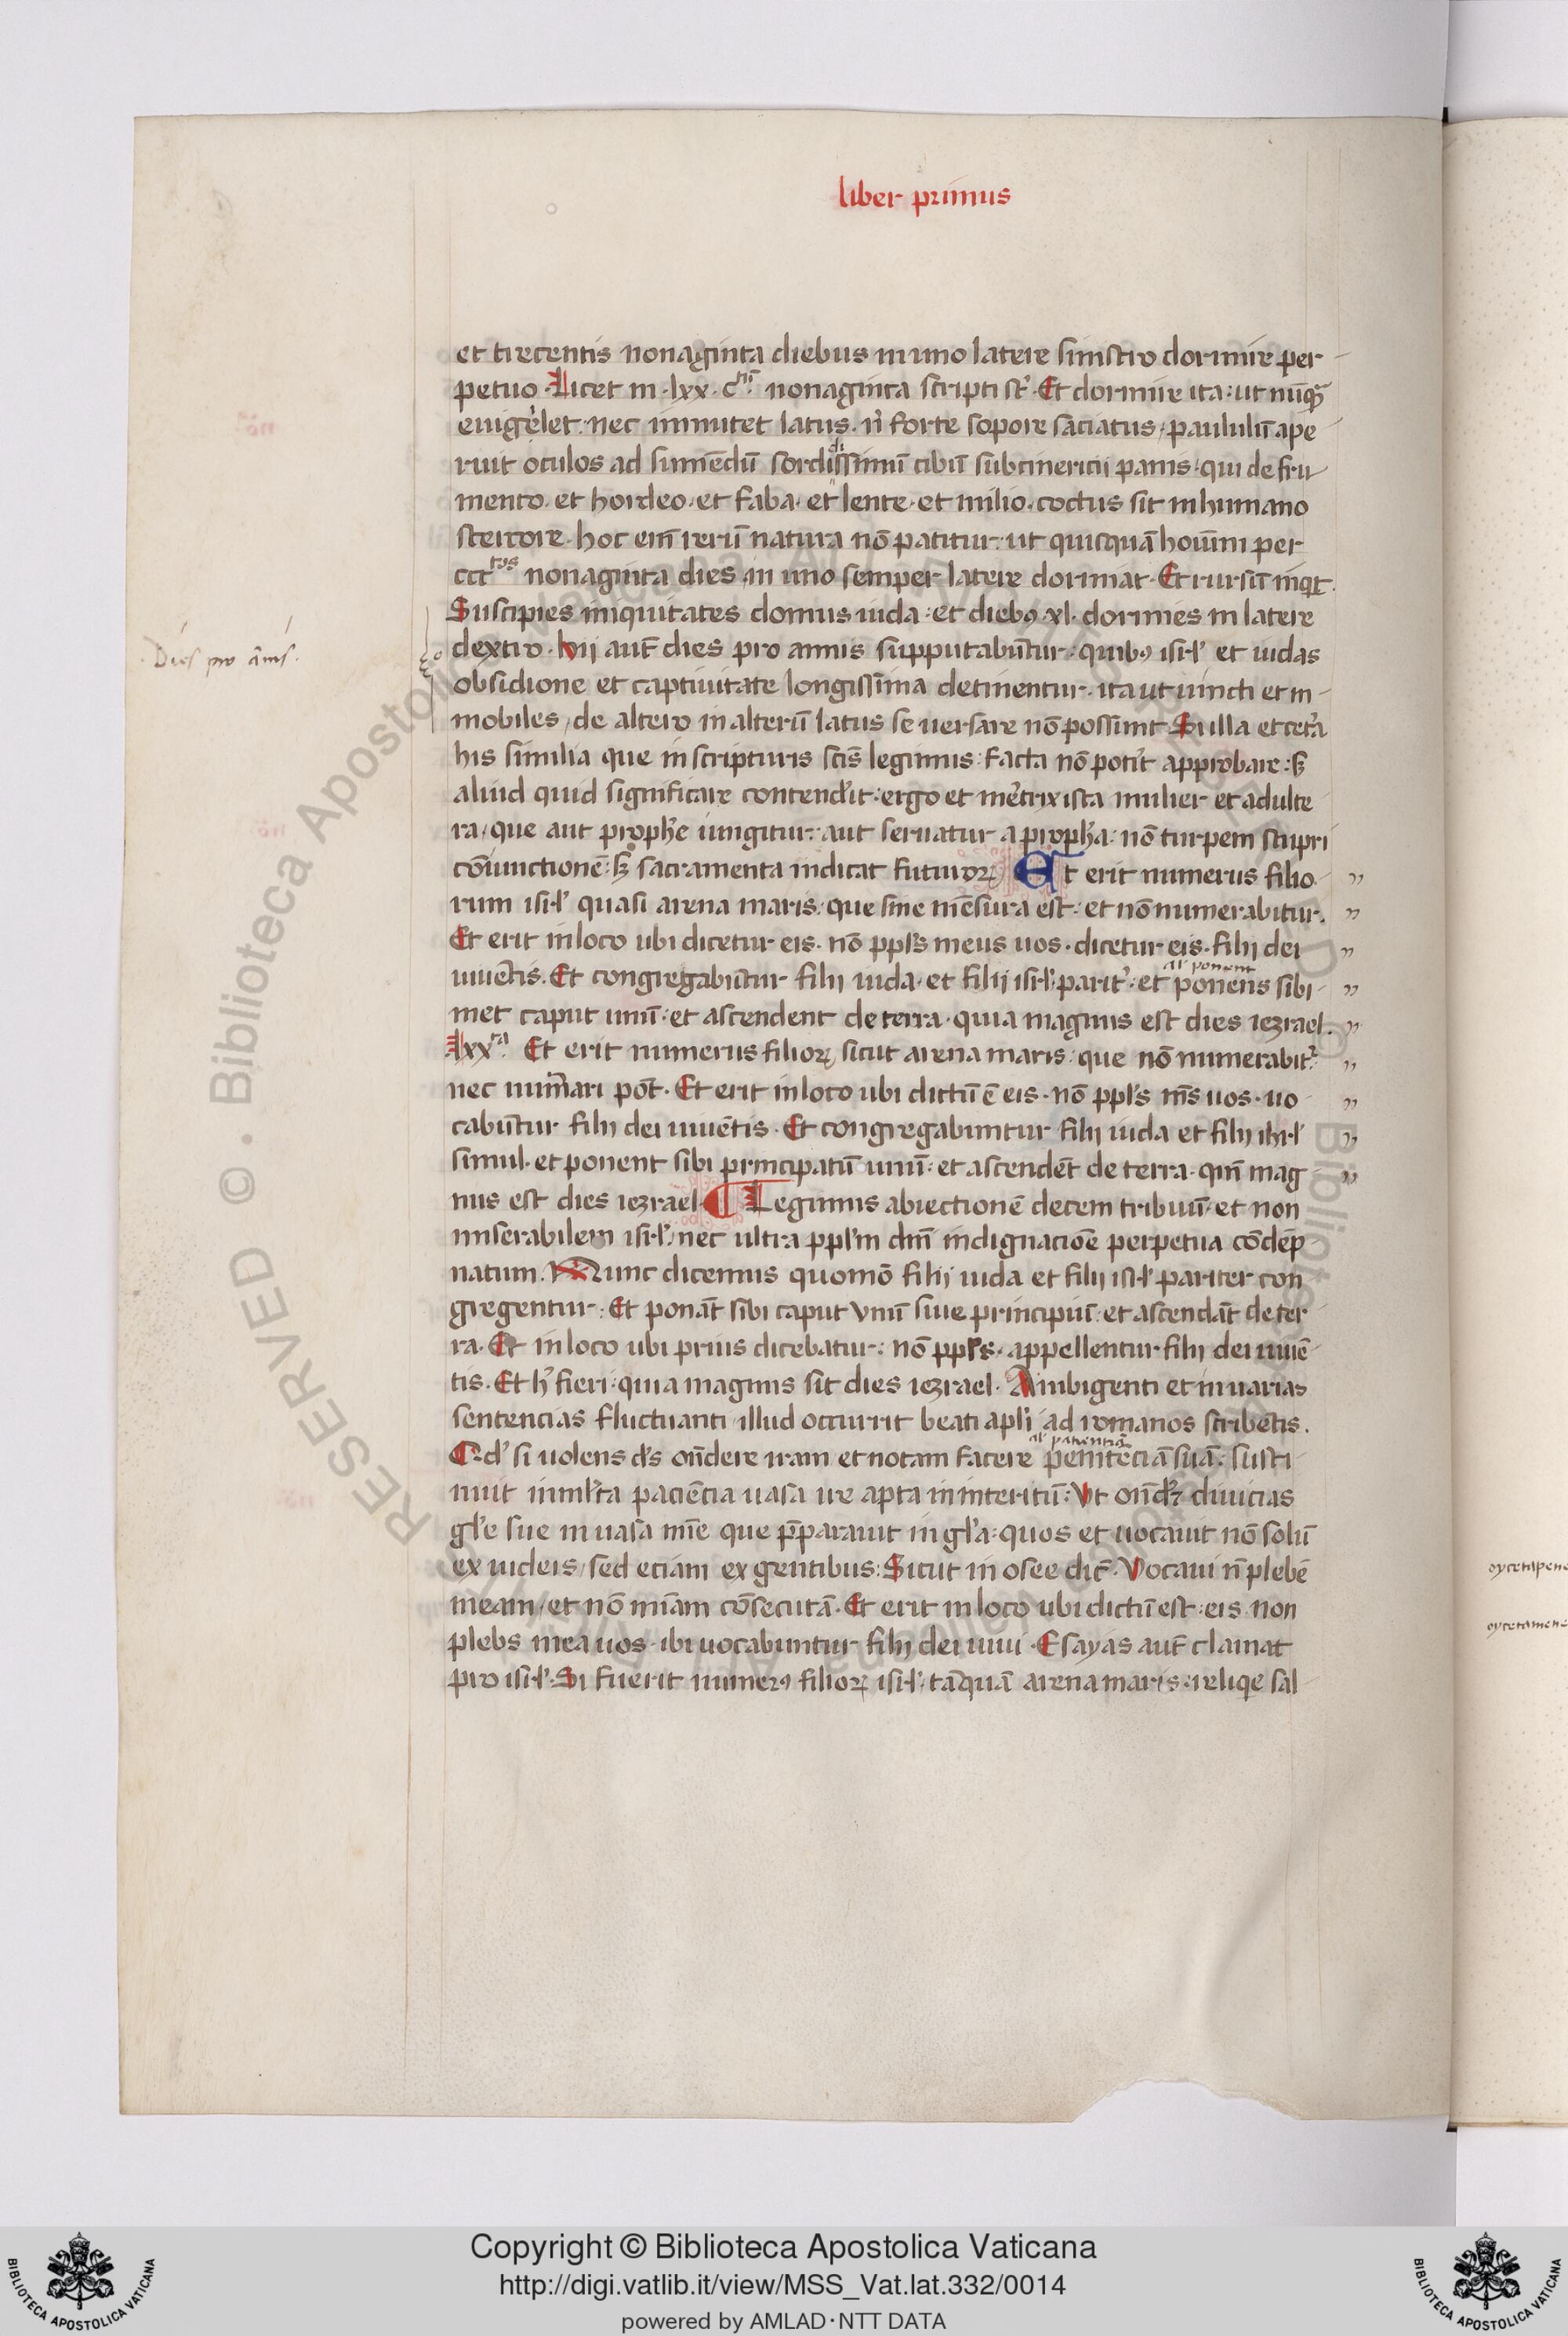 liber primus
et trecentis nonaginta diebus in uno latere sinistro dormire per
petuo. Licet in .lxx. cti. nonaginta scripti st᷒. Et dormire ita: ut nūq̄
euigelet. nec immutet latus. n̄ forte sopore saciatus, paululū ape
ruit oculos ad sumēdū sordissimū cibū subcinericii panis. qui de fru
mento. et hordeo. et faba. et lente. et milio. coctus sit in humano
stercore. hoc em̄ rerū natura nō patitur: ut quisquā hoīm per
ccctos nonaginta dies in uno semper latere dormiat. Et rursū inqt.
Suscipies iniquitates domus iuda: et dieb9 .xl. dormies in latere
Dies pro ānis.
dextro. hij aut̄ dies pro annis supputabūtur: quib9 isrl' et iudas
obsidione et captiuitate longissima detinentur. ita ut uincti et in
mobiles, de altero in alterū latus se uersare nō possint. Si illa et cet'a
his similia que in scripturis scīs legimus: facta nō potit approbare: s
aliud quid significare contendit: ergo et m'etrix ista mulier et adulte
ra, que aut prophe iungitur: aut seruatur a propha: nō turpem stupri
cōiunctionē: s sacramenta indicat futuroꝝ Et erit numerus filio
rum isrl' quasi arena maris: que sine mēsura est: et nō numerabitur.
Et erit in loco ubi dicetur eis. nō ppl's meus uos. dicetur eis. filij dei
al' ponent
uiuētis. Et congregabūtur filij iuda. et filij isrl' parit'. et ponens sibi
met caput unū: et ascendent de terra. quia magnus est dies iezrael.
lxxta. Et erit numerus filioꝝ sicut arena maris: que nō numerabit'.
nec num̄ari pōt. Et erit in loco ubi dictū ē eis. nō ppl's m̄s uos. uo
cabūtur filij dei uiuētis. Et congregabuntur filij iuda et filij ihrl'
simul. et ponent sibi principatū unū: et ascendēt de terra. qm̄ mag
nus est dies iezrael. Legimus abiectionē decem tribuū. et non
miserabilem isrl'. nec ultra ppl'm dn̄i indignaciōe perpetua cōdēp
natum. Nunc dicemus quomō filij iuda et filij isrl' pariter con
gregentur: Et ponāt sibi caput vnū siue principiū. et ascendāt de ter
ra. Et in loco ubi prius dicebatur: nō ppl's. appellentur filij dei uiuē
tis. Et h' fieri: quia magnus sit dies iezrael. Ambigenti et in uarias
sentencias fluctuanti illud occurrit beati apl'i ad romanos scribētis.
al' patientiā
Qd' si uolens d's on̄dere iram et notam facere penitēciā suā: susti
nuit in ml'ta paciēcia uasa ire apta in interitū: Vt on̄d'et diuicias
gl'e sue in uasa mīe que p̄parauit in gl'a: quos et uocauit nō solū
ex iudeis, sed eciam ex gentibus: Sicut in osee dic̄. Vocaui n̄ plebē
meam, et nō mīam cōsecutā. Et erit in loco ubi dictū est: eis non
plebs mea uos. ibi uocabuntur filij dei uiui. Esayas aut̄ clamat
pro isrl'. Si fuerit numer9 filioꝝ isrl' tāquā arena maris. reliqe sal
Copyright © Biblioteca Apostolica Vaticana
http://digi.vatlib.it/view/MSS_Vat.lat.332/0014
powered by AMLAD·NTT DATA